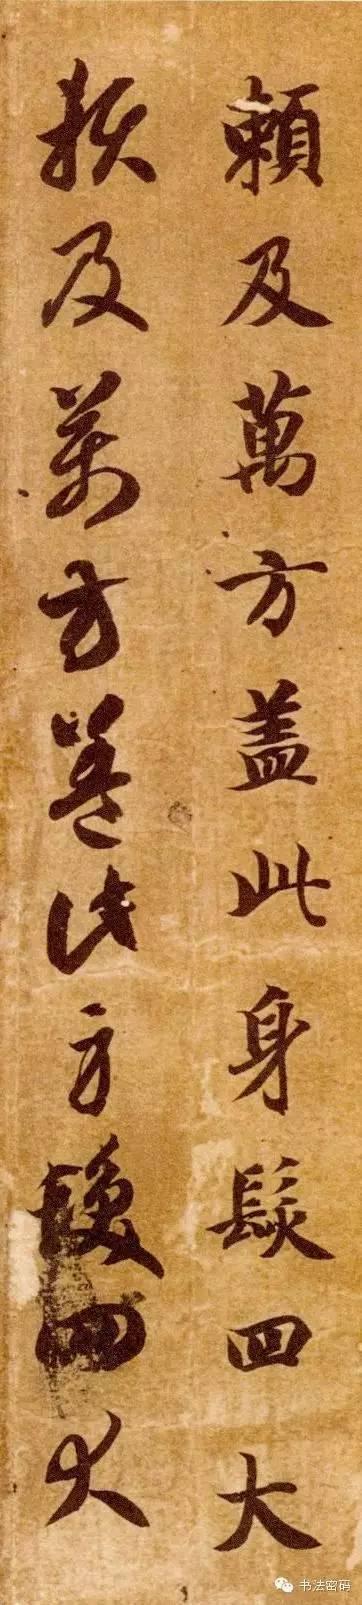 頼及萬方盖此身髮四大
頼及萬方盖此身髮四大
书法密码